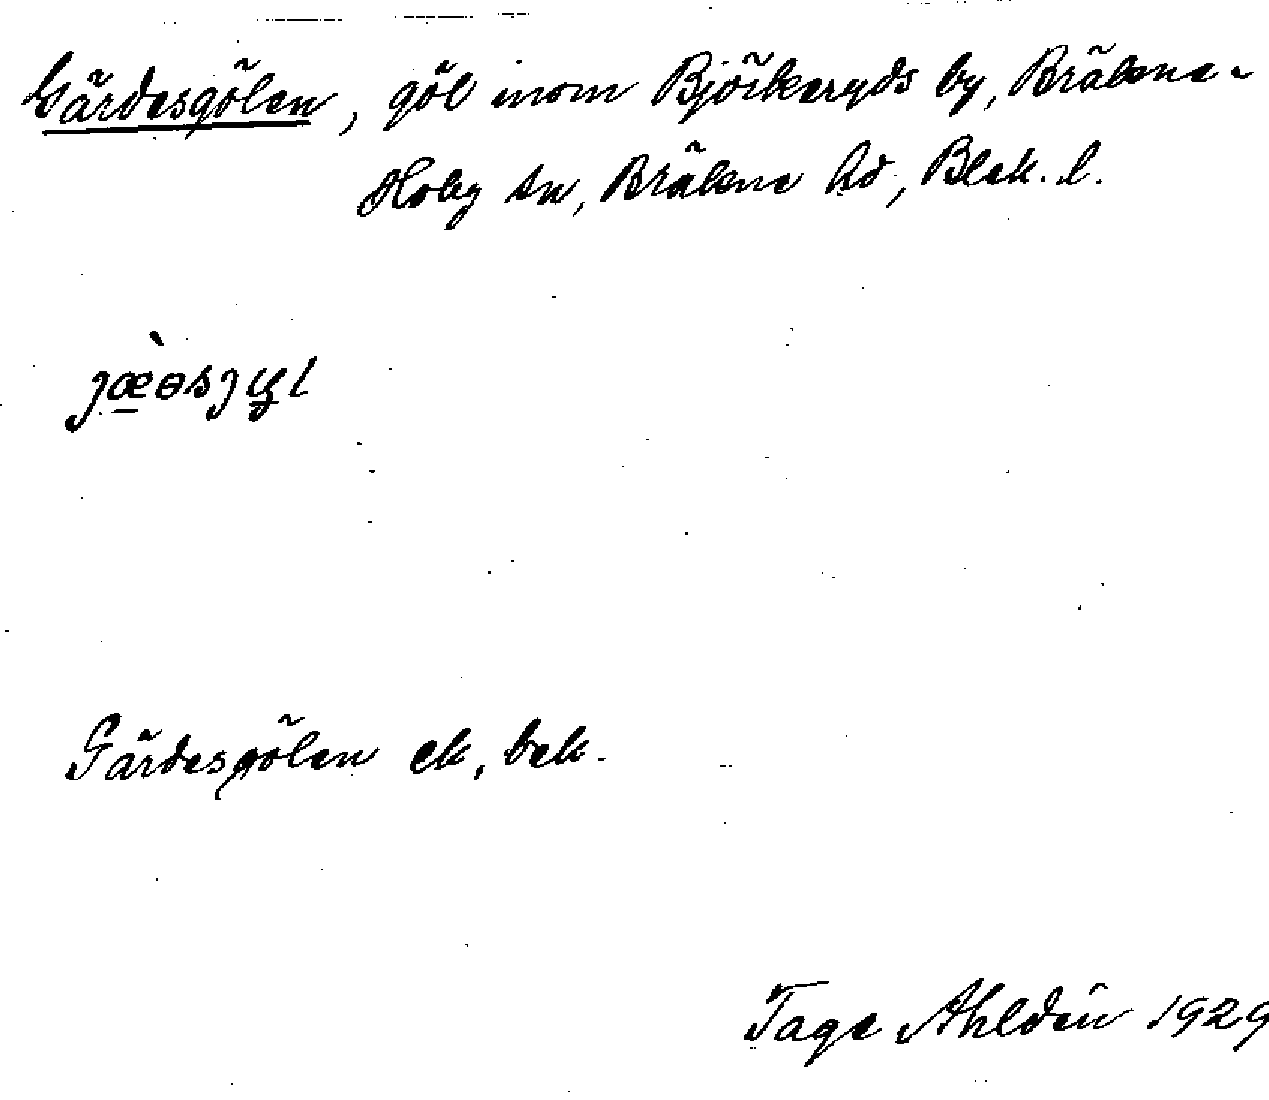 Gärdesgölen, göl inom Björkeryds by, Bräkne-
Hoby sn, Bräkne hd, Blek. l.
Gärdesgölen ek, bek.
Tage Ahldén 1929